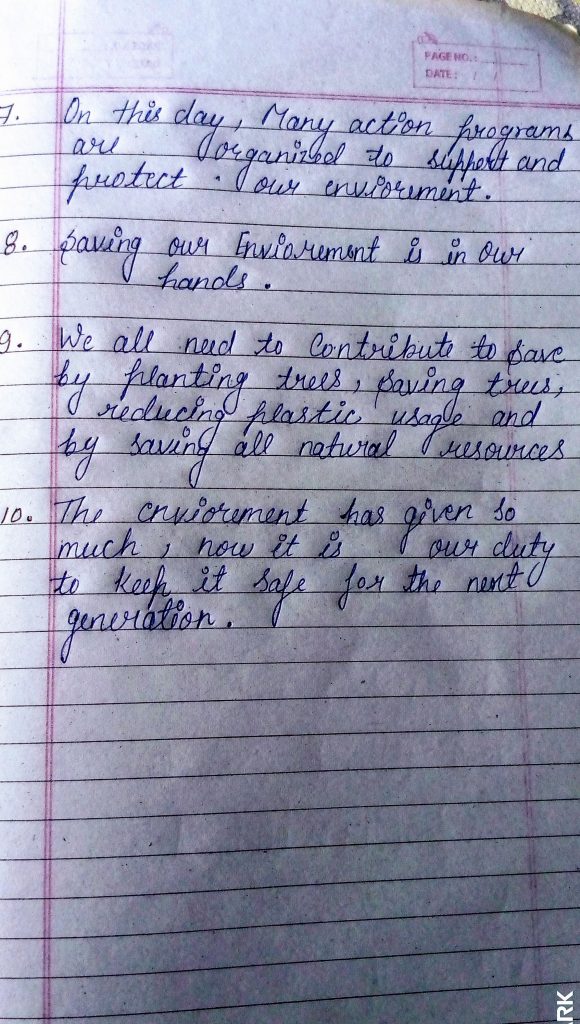 PAGE NO.:
DATE: / /
7. On this day, Many action programs
are organized to support and
protect . our enviorement.
8. Saving our Enviorement is in our
hands.
9. We all need to Contribute to save
by planting trees, saving trees,
reducing plastic usage and
by saving all natural resources
10. The enviorement has given so
much, now it is our duty
to keep it safe for the next
generation.
RK